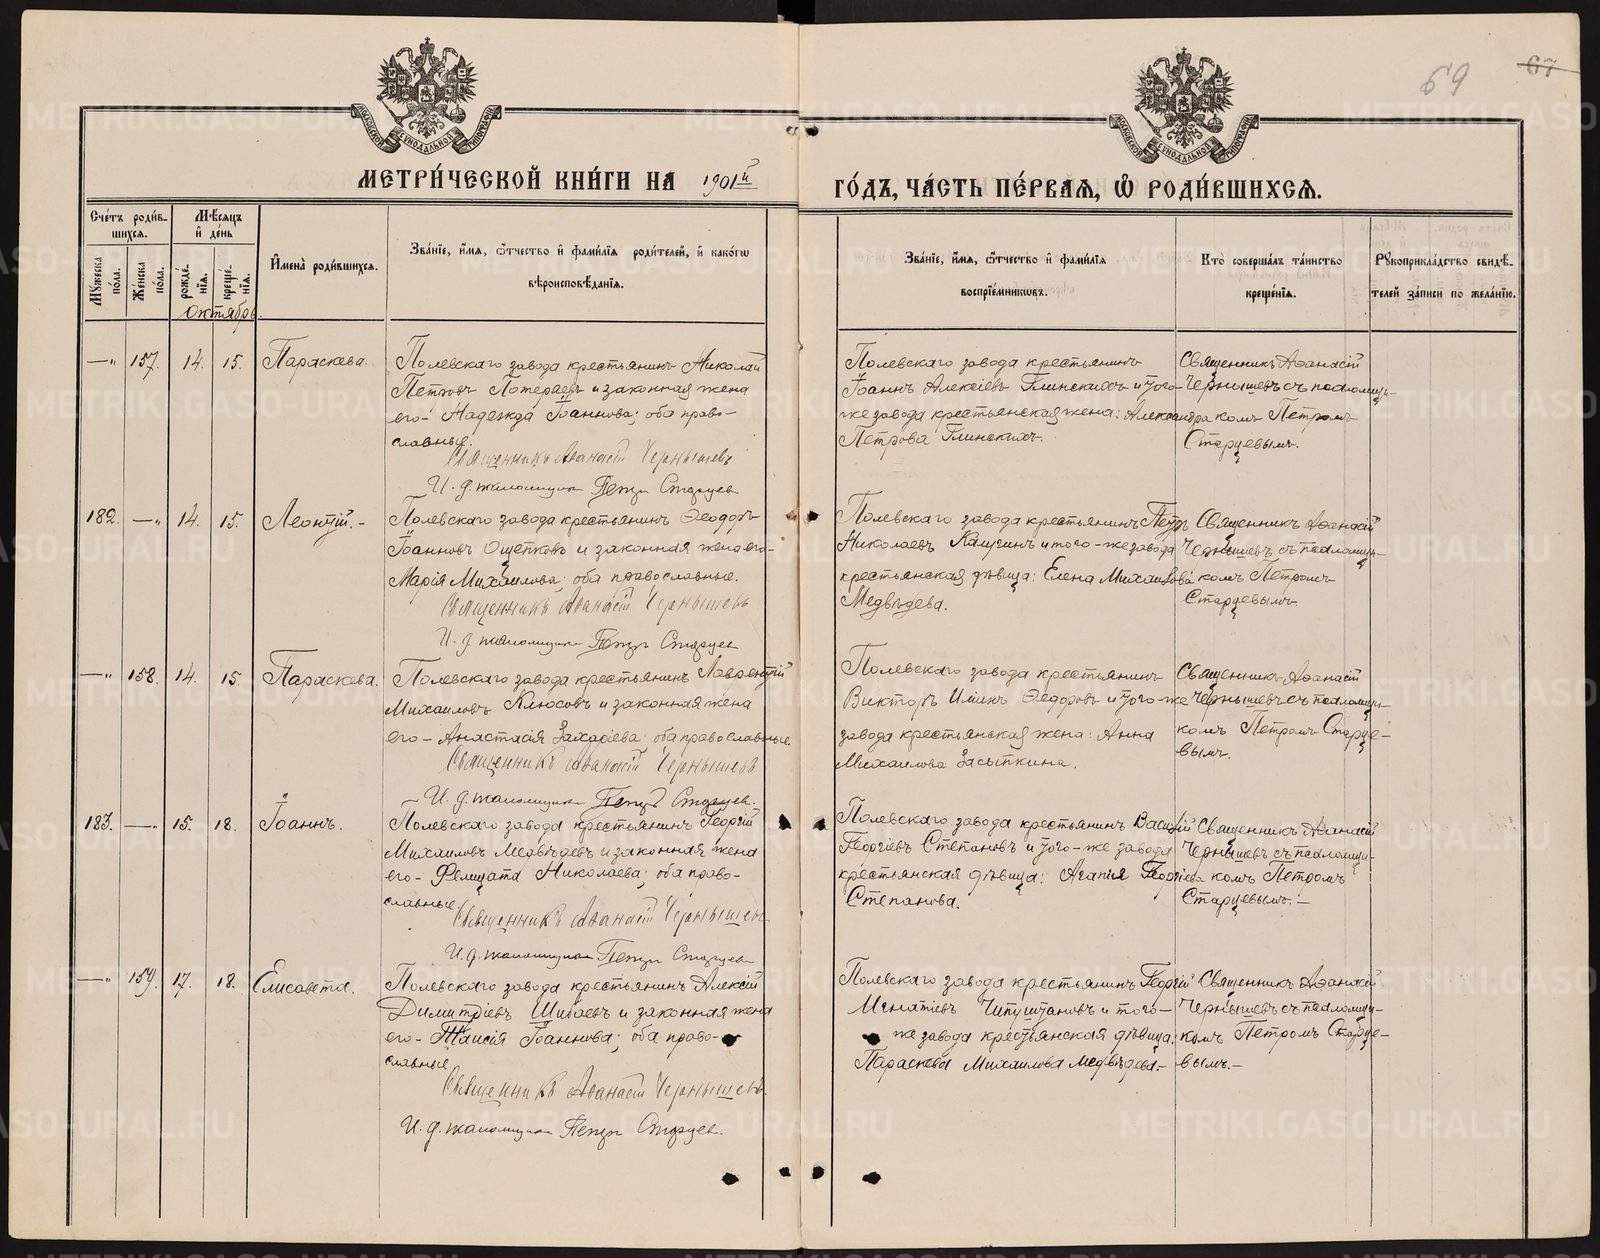 69
67
МОСКОВСКОЙ СѴНОДАЛЬНОЙ ТИПОГРАФІИ
МОСКОВСКОЙ СѴНОДАЛЬНОЙ ТИПОГРАФІИ
МЕТРИ́ЧЕСКОЙ КНИ́ГИ НА 1901й
ГО́ДЪ, ЧА́СТЬ ПЕ́РВАЯ, Ѽ РОДИ́ВШИХСЯ.
Сче́тъ роди́в-
шихся.
Мѣ́сяцъ
и҆ де́нь
Мꙋ́жеска по́ла.
Же́нска по́ла.
рожде́нїѧ.
креще́нїѧ.
И҆мена̀ роди́вшихсѧ.
Зва́нїе, и҆́мѧ, ѻ҆́тчество и҆ фами́лїѧ роди́телей, и҆ како́гѡ
вѣроисповѣ́данїѧ.
Зва́нїе, и҆́мѧ, ѻ҆́тчество и҆ фами́лїѧ
воспрїе́мникѡвъ.
Кто̀ соверша́лъ та́инство
креще́нїѧ.
Рꙋкоприкла́дство свидѣ́-
телей за́писи по жела́нїю.
Октябрь.
—„ 157. 14. 15. Параскева.
Полевскаго завода крестьянинъ Николай
Петровъ Потеряевъ и законная жена
его- Надежда Іоаннова; оба право-
славные.
Священникъ Аѳанасій Чернышевъ
И. д. псаломщика Петръ Старцев
Полевскаго завода крестьянинъ
Іоаннъ Алексіевъ Глинскихъ и того-
же завода крестьянская жена: Александра
Петрова Глинскихъ.
Священникъ Аѳанасій
Чернышевъ съ псаломщи-
комъ Петромъ
Старцевымъ.
182. —„ 14. 15. Леонтій.-
Полевскаго завода крестьянинъ Ѳеодоръ
Іоанновъ Ощепковъ и законная жена его-
Марія Михаилова; оба православные.
Священникъ Аѳанасій Чернышевъ
И. д. псаломщика Петръ Старцев
Полевскаго завода крестьянинъ Петръ
Николаевъ Калугинъ и того-же завода
крестьянская дѣвица: Елена Михаилова
Медвѣдева.
Священникъ Аѳанасій
Чернышевъ съ псаломщи-
комъ Петромъ
Старцевымъ.
—„ 158. 14. 15. Параскева.
Полевскаго завода крестьянинъ Лаврентій
Михаиловъ Клюсовъ и законная жена
его- Анастасія Захаріева; оба православные.
Священникъ Аѳанасій Чернышевъ
И. д. псаломщика Петръ Старцев.
Полевскаго завода крестьянинъ
Викторъ Ѳедоровъ и того-же
завода крестьянская жена: Анна
Михаилова Засыпкина.
Священникъ Аѳанасій
Чернышевъ съ псаломщи-
комъ Петромъ Старце-
вымъ.
183. —„ 15. 18. Іоаннъ.
Полевскаго завода крестьянинъ Георгій
Михаиловъ Медвѣдевъ и законная жена
его- Фелицата Николаева; оба право-
славные.
Священникъ Аѳанасій Чернышевъ
И. д. псаломщика Петръ Старцев
Полевскаго завода крестьянинъ Василій
Георгіевъ Степановъ и того-же завода
крестьянская дѣвица: Агапія Георгіева
Степанова.
Священникъ Аѳанасій
Чернышевъ съ псаломщи-
комъ Петромъ
Старцевымъ.-
—„ 159. 17. 18. Елисавета.
Полевскаго завода крестьянинъ Алексій
Димитріевъ Шибаевъ и законная жена
его- Таисія Іоаннова; оба право-
славные.
Священникъ Аѳанасій Чернышевъ
И. д. псаломщика Петръ Старцев.
Полевскаго завода крестьянинъ Георгій
Игнатіевъ Чипуштановъ и того-
же завода крестьянская дѣвица:
Параскева Михаилова Медвѣдева.-
Священникъ Аѳанасій
Чернышевъ съ псаломщи-
комъ Петромъ Старце-
вымъ.-
METRIKI.GASO-URAL.RU